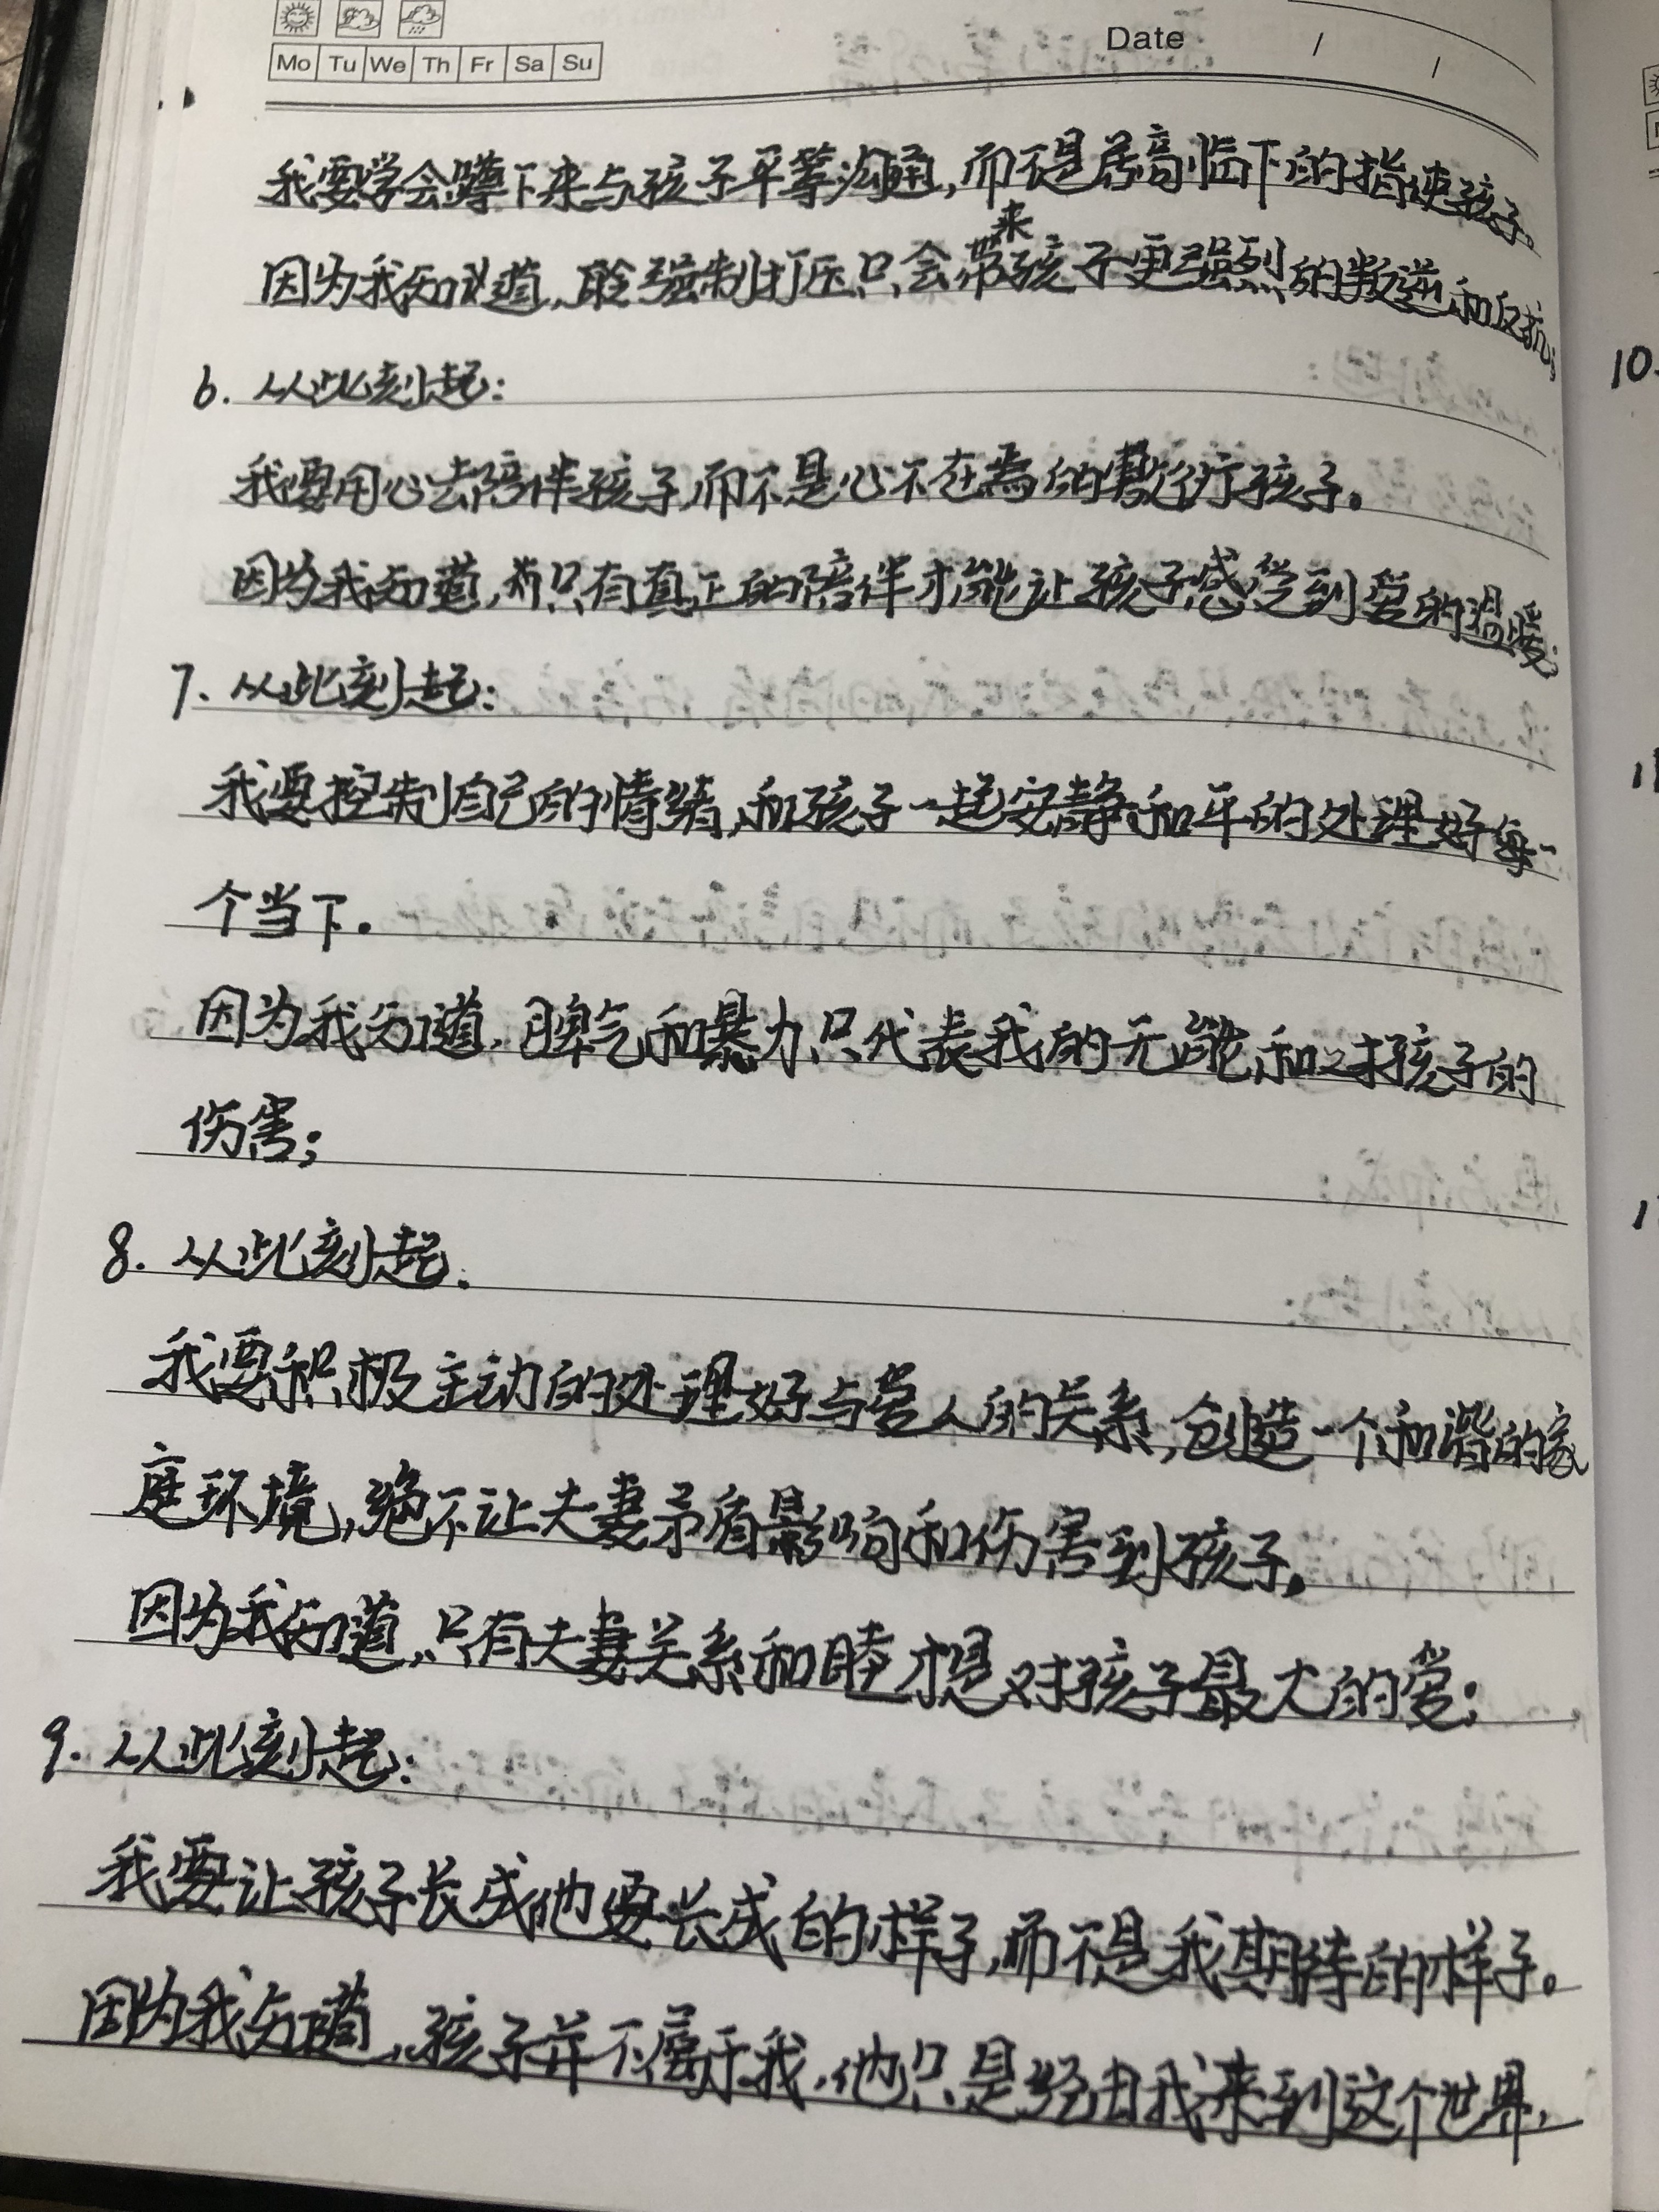 Mo Tu We Th Fr Sa Su
Date / /
我要学会蹲下来与孩子平等沟通,而不是居高临下的指使孩子。
因为我知道,强制打压只会带来孩子更强烈的叛逆和反抗;
6. 从此刻起:
我要用心去陪伴孩子,而不是心不在焉的敷衍孩子。
因为我知道,只有真正的陪伴才能让孩子感受到爱的温暖;
7. 从此刻起:
我要控制自己的情绪,和孩子一起安静和平的处理好每一
个当下。
因为我知道,脾气和暴力只代表我的无能和对孩子的
伤害;
8. 从此刻起:
我要积极主动的处理好与爱人的关系,创造一个和谐的家
庭环境,绝不让夫妻矛盾影响和伤害到孩子。
因为我知道,只有夫妻关系和睦才是对孩子最大的爱;
9. 从此刻起:
我要让孩子长成他要长成的样子,而不是我期待的样子。
因为我知道,孩子并不属于我,他只是经由我来到这个世界,
10.